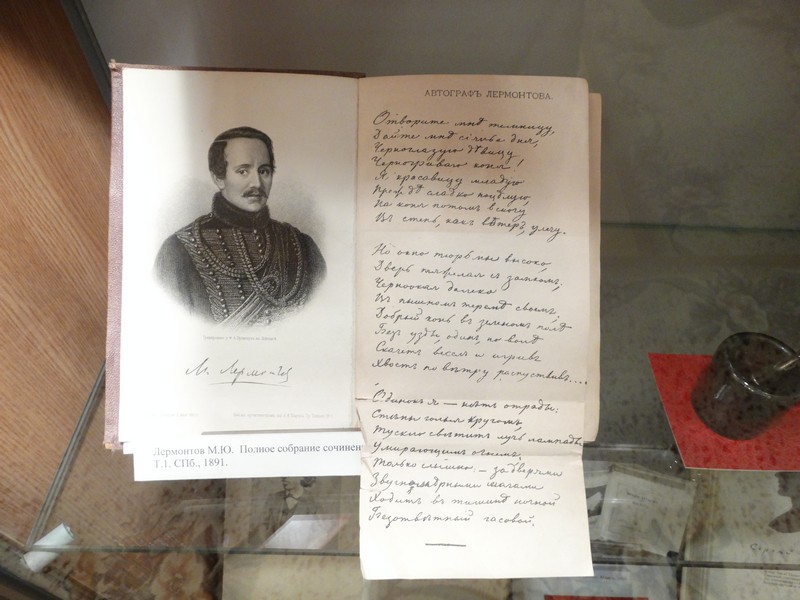 АВТОГРАФЪ ЛЕРМОНТОВА.
Отворите мнѣ темницу,
Дайте мнѣ сіянье дня,
Черноглазую дѣвицу
Черногриваго коня!
Я красавицу младую
Прежде сладко поцѣлую,
На коня потомъ вскочу
Въ степь, какъ вѣтеръ, улечу.
Но окно тюрьмы высоко,
Дверь тяжелая съ замкомъ;
Черноокая далеко
Въ пышномъ теремѣ своемъ;
Добрый конь въ зеленомъ полѣ
Безъ узды, одинъ, по волѣ
Скачетъ веселъ и игривъ
Хвостъ по вѣтру распустивъ....
Одинокъ я — нѣтъ отрады:
Стѣны голыя кругомъ,
Тускло свѣтитъ лучъ лампады
Умирающимъ огнемъ;
Только слышно, — за дверями
Звучномѣрными шагами
Ходитъ въ тишинѣ ночной
Безотвѣтный часовой.
М. Лермонтовъ
Лермонтов М.Ю. Полное собрание сочинен
Т.1. СПб., 1891.